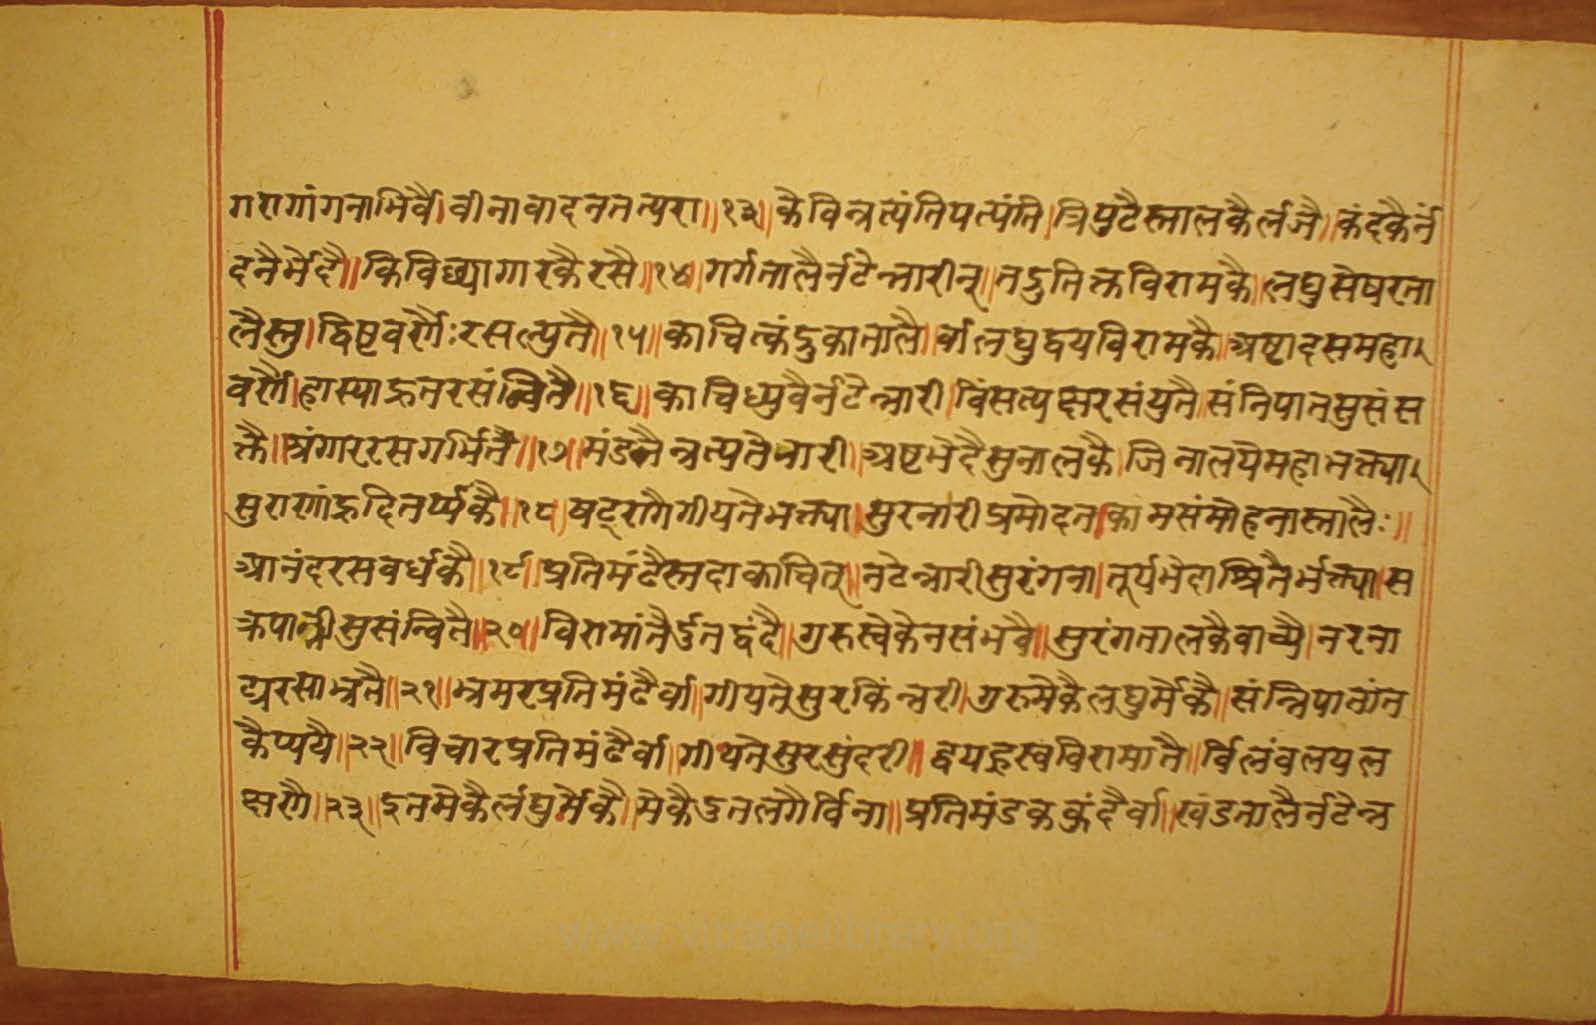 गरागांगनाभिर्वै।वीनावादनतत्परा॥१३॥कैविन्नृत्यंतिपत्पंति।त्रिपुटैस्तालकैर्लजै॥कंदकैर्नं
दनैर्भेदै॥किविछ्यागारकैरसै॥१४॥गर्गतालैर्नटेन्नारीनृ॥नदुतिक्तविरामकै॥लघुसेषरता
लैस्तु।द्विष्टवर्णैःरसत्प्युतै॥१५॥काचित्कंदुकातालै।र्वालघुद्वयविरामकै॥अष्टादसमहा
वर्णै।हास्याद्भुतरसंन्वितै॥१६॥काचिध्रुवैर्नटेन्नारी।विंसत्यक्षरसंयुतै॥संनिपातसुसंस
क्तै॥श्रंगाररसगर्भितै॥१७॥मंडलैन्नृत्यतेनारी।अष्टभेदैसुतालकै।जिनालयेमहाभक्त्या
सुरागांहृदितर्प्यकै॥१८॥षट्रागैगीयतेभक्त्या।सुरनारीप्रमोदत।कामसंमोहनास्तालैः॥
आनंदरसवर्धकै॥१९॥प्रतिमंटैस्तदाकाचित्॥नटेन्नारीसुरंगना।तूर्यभेदाश्रितैर्भक्त्या॥स
क्रेपात्नीसुसंन्वितै॥२०॥विरामांतैर्द्रुतद्वंदै॥गुरुस्त्वेकेनसंभवै॥सुरंगतालकैवाच्यै।नरना
ट्यरसाभ्नतै॥२१॥भ्रमरप्रतिमंटैर्वा॥गीयतेसुरकिंन्नरी।गुरुमेकैलघुर्मेकै॥संन्निपातांत
कैप्ययै॥२२॥विचारप्रतिमंटैर्वा॥गीयतेसुरसुंदरी॥द्वयह्रस्वविरामातै॥र्विलंवलयल
क्षणै॥२३॥द्रुतमेकैर्लघुर्मेकै॥मेकैद्रुतलगैर्विना॥प्रतिमंडककुंदैर्वा॥खंडतालैर्नटेन्न
www.vitragelibrary.org